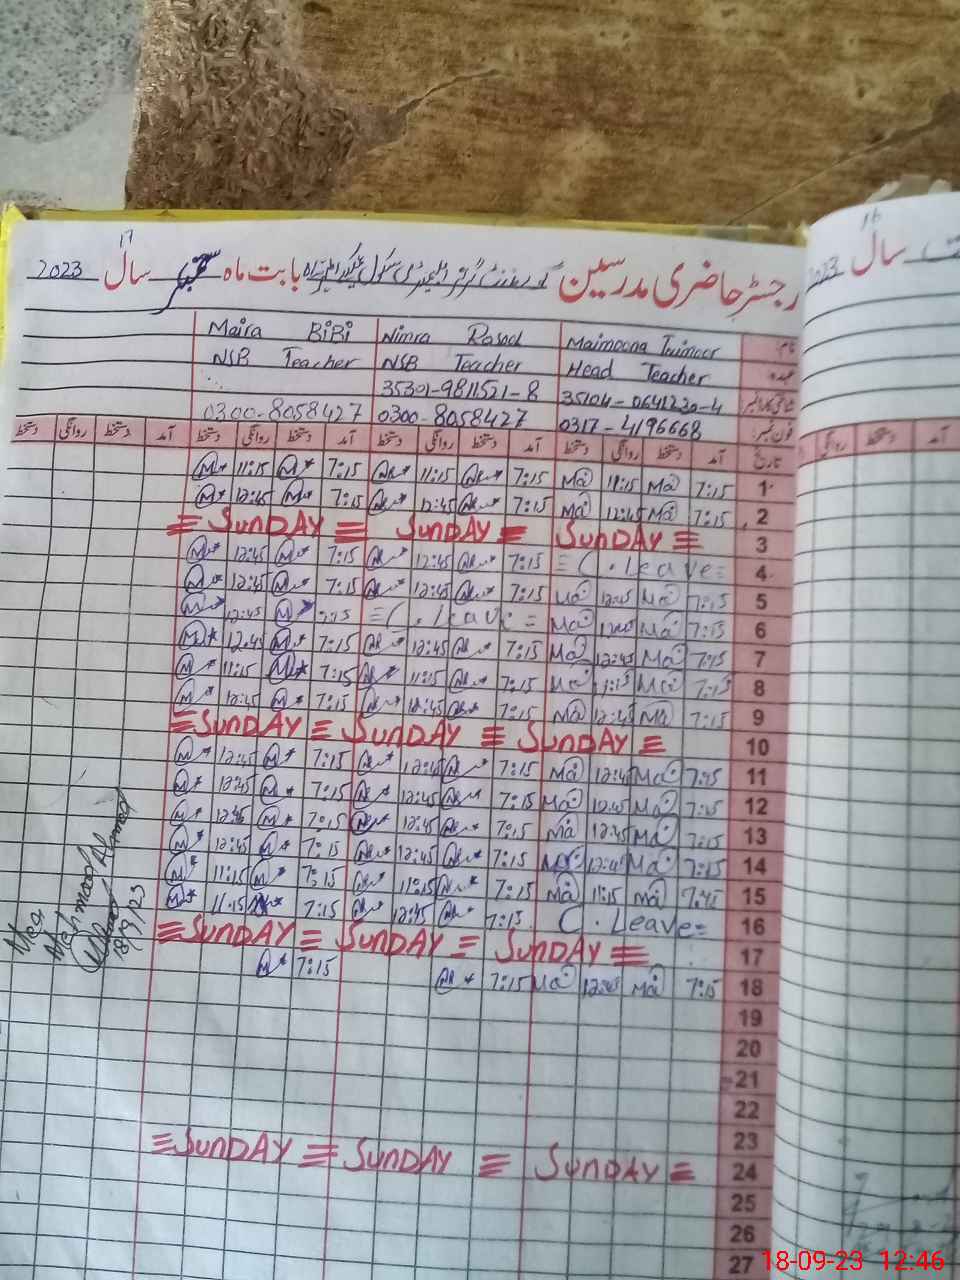 17
رجسٹر حاضری مدرسین گورنمنٹ گرلز سکول بابت ماہ ستمبر سال 2023
نام Maimoona Taimoor Nimra Rasool Maira BiBi
عہدہ Head Teacher NSB Teacher NSB Teacher
35104-0641220-4 35301-9811521-8
فون نمبر 0317-4196668 0300-8058427 0300-8058427
تاریخ آمد دستخط روانگی دستخط آمد دستخط روانگی دستخط آمد دستخط روانگی دستخط آمد دستخط روانگی دستخط
1 7:15 Ma 11:15 Ma 7:15 11:15 7:15 M 11:15 M
2 7:15 Ma 12:45 Ma 7:15 12:45 7:15 M 12:45 M
3 SunDAY SunDAY SunDAY
4 C.Leave 7:15 12:45 7:15 M 12:45 M
5 7:15 Ma 12:45 Ma 7:15 12:45 7:15 M 12:45 M
6 7:15 Ma Ma C.Leave 7:15 M 12:45 M
7 7:15 Ma 12:45 Ma 7:15 12:45 7:15 M 12:45 M
8 7:15 Ma 11:15 Ma 7:15 11:15 7:15 M 11:15 M
9 7:15 Ma 12:45 Ma 7:15 12:45 7:15 M 12:45 M
10 SunDAY SunDAY SunDAY
11 7:15 Ma 12:45 Ma 7:15 12:45 7:15 M 12:45 M
12 7:15 Ma 12:45 Ma 7:15 12:45 7:15 M 12:45 M
13 7:15 Ma 12:45 Ma 7:15 12:45 7:15 M 12:45 M
14 7:15 Ma 12:45 Ma 7:15 12:45 7:15 M 12:45 M
15 7:15 Ma 11:15 Ma 7:15 11:15 7:15 M 11:15 M
16 C.Leave 7:15 12:45 7:15 11:15 M
17 SunDAY SunDAY SunDAY
18 7:15 Ma 12:45 Ma 7:15 7:15 M
19
20
21
22
23
24 SunDAY SunDAY SunDAY
25
26
27
Mea
Mehmood Ahmad
18/9/23
16
سال 2023
آمد دستخط روانگی
18-09-23 12:46